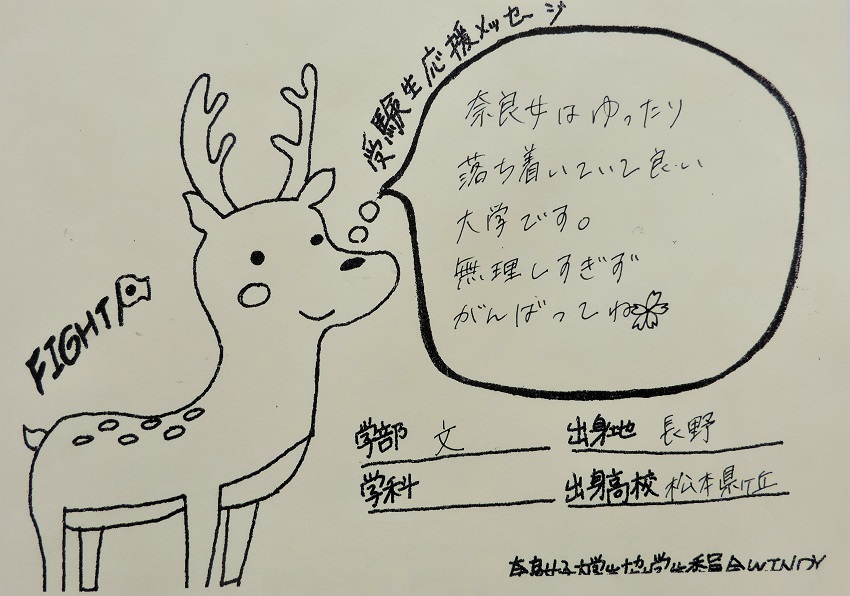 受験生応援メッセージ
奈良女はゆったり
落ち着いていて良い
大学です。
無理しすぎず
がんばってね
FIGHT
学部 文
出身地 長野
学科
出身高校 松本県ケ丘
奈良女子大学生協学生委員会WINDY